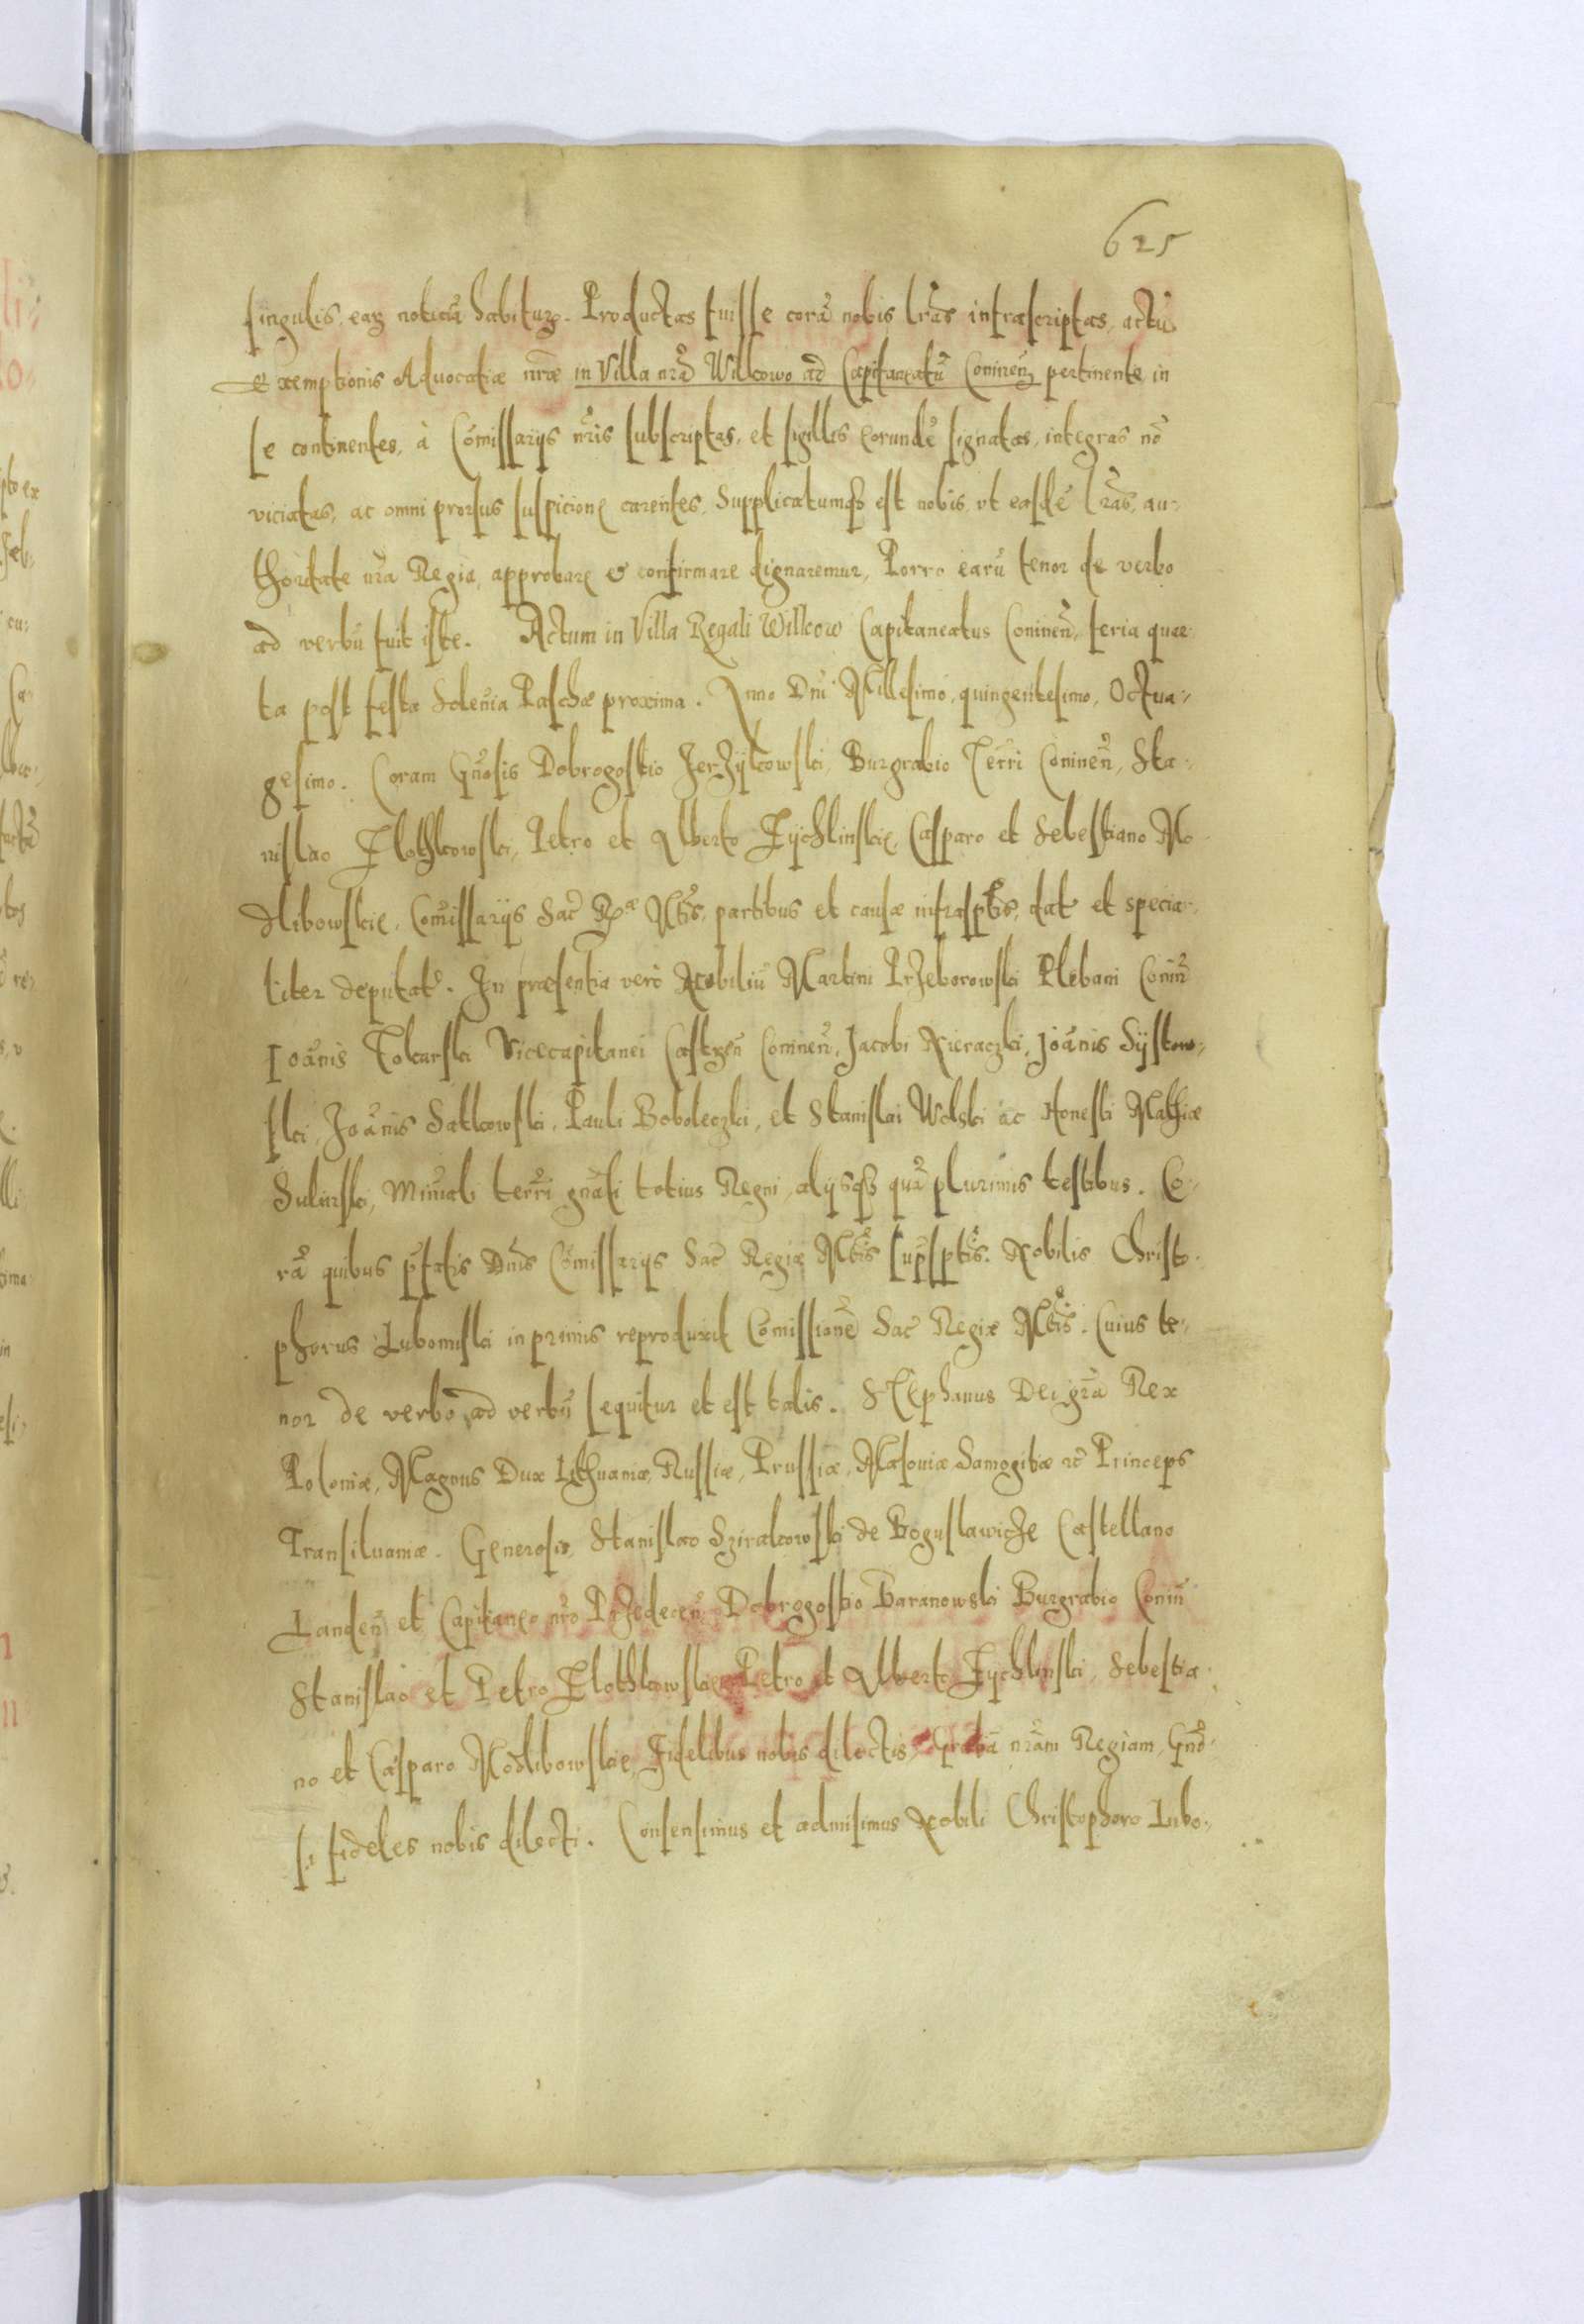 625
singulis, earũ noticiã habituris. Productas fuisse corã nobis lr̃as infrascriptas, actũ
exemptionis Advocatiæ nr̃æ in Villa nr̃a Willkowo ad Capitaneatũ Coninen̄ pertinente, in
se continentes, à Com̃issarijs nr̃is subscriptas, et sigillis eorundẽ signatas, integras nõ
viciatas, ac omni prorsus suspicione carentes, Supplicatumq3 est nobis, vt easdẽ lr̃as, au-
thoritate nr̃a Regia, approbare & confirmare dignaremur, Porro earũ tenor de verbo
ad verbũ fuit iste. Actum in Villa Regali Willkow Capitaneatus Coninen̄, feria quar
ta post festa Solenia Paschæ proxima. Anno Dn̄i Millesimo, quingentesimo, Octua-
gesimo. Coram Gn̄osis Dobrogostio Jerzÿkowski, Burgrabio Terr̃i Coninen̄, Sta-
nislao Flothkowski, Petro et Alberto Zÿchlinskie, Casparo et Sebestiano Mo-
dlibowskie, Com̃issarijs Sac̃ R. Mt̃is, partibus et causæ infrasp̃tis, dat̃ et specia-
liter deputat̃. In præsentia verò Nobiliũ Martini Przeborowski Plebani Conin̄
Ioãnis Tokarski Vicecapitanei Castren̄ Coninen̄, Jacobi Nieraczki, Joãnis Sÿskow-
ski, Joãnis Satkowski, Pauli Boboleczki, et Stanislai Wolski ac Honesti Mathiæ
Sulinski, Min̄iali terr̃i gn̄ali totius Regni, alijsq3 quã plurimis testibus. Co-
rã quibus p̃fatis Dn̄is Com̃issarijs Sac̃ Regiæ Mt̃is sup̃sptis. Nobilis Christo-
phorus Lubomski in primis reproduxit Com̃issionẽ Sac̃ Regiæ Mt̃is. Cuius te-
nor de verbo ad verbũ sequitur et est talis. Stephanus Dei gr̃a Rex
Poloniæ, Magnus Dux Lithuaniæ, Russiæ, Prussiæ, Masoviæ, Samogitiæ &c̃ Princeps
Transilvaniæ. Generosis Stanislao Szirakowski de Boguslawicze Castellano
Landen̄ et Capitaneo nr̃o Przedecen̄, Dobrogostio Baranowski Burgrabio Conin̄
Stanislao et Petro Flothkowskie, Petro et Alberto Zÿchlinski, Sebestia-
no et Casparo Modlibowskie, Fidelibus nobis dilectis, Gratiã nr̃am Regiam, Gn̄o-
si fideles nobis dilecti. Consensimus et admisimus Nobili Christophoro Lubo-